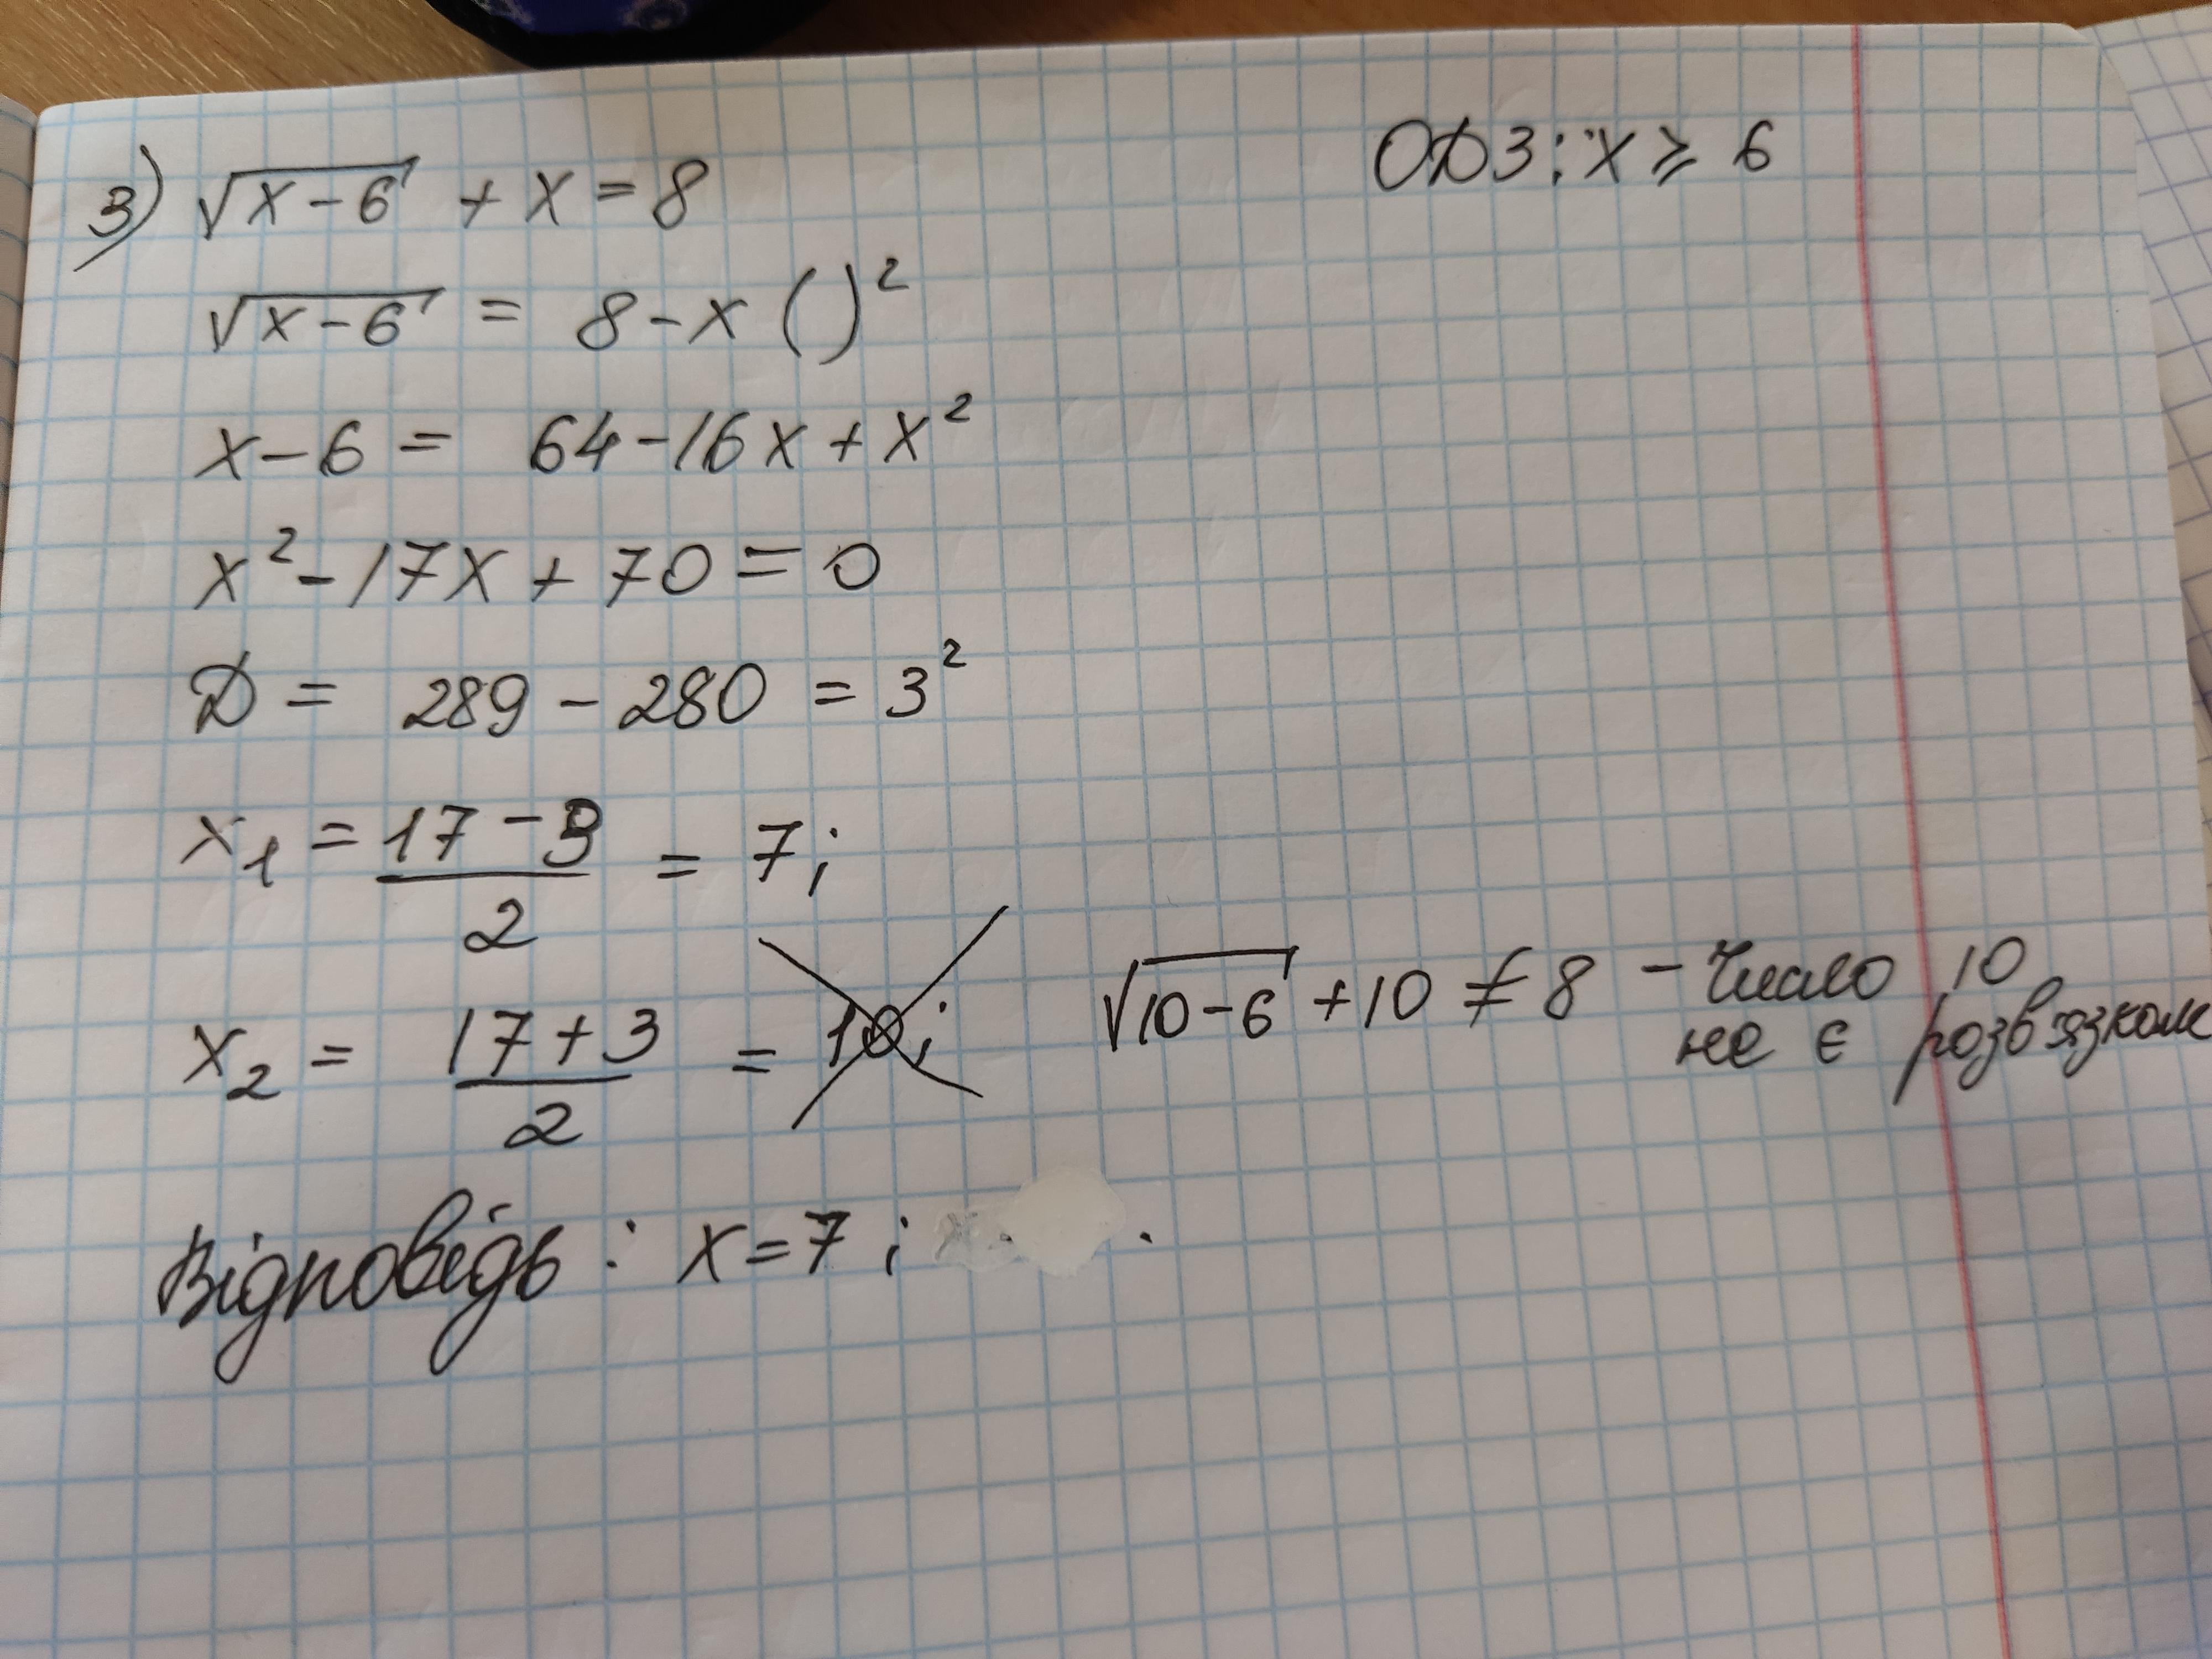 3) √x-6 + x = 8
ОДЗ: x ⩾ 6
√x-6 = 8-x ( )²
x-6 = 64-16x+x²
x²-17x+70=0
Д = 289-280 = 3²
x₁ = 17-3/2 = 7;
x₂ = 17+3/2 = 10;
√10-6 +10 ≠ 8 - Число 10
не є розв'язком
Відповідь: x=7; .